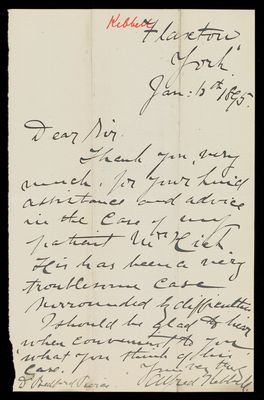 Kibbell
Flaxton
York
Jan: 12th 1895
Dear Sir.
Thank you, very
much, for your kind
assistance and advice
in the case of my
patient Mr Hick
His has been a very
troublesome case
surrounded by difficulties
I should be glad to hear
when convenient to you
what you think of his
case. Yours very truly
Dr Bedford Pierce Alfred